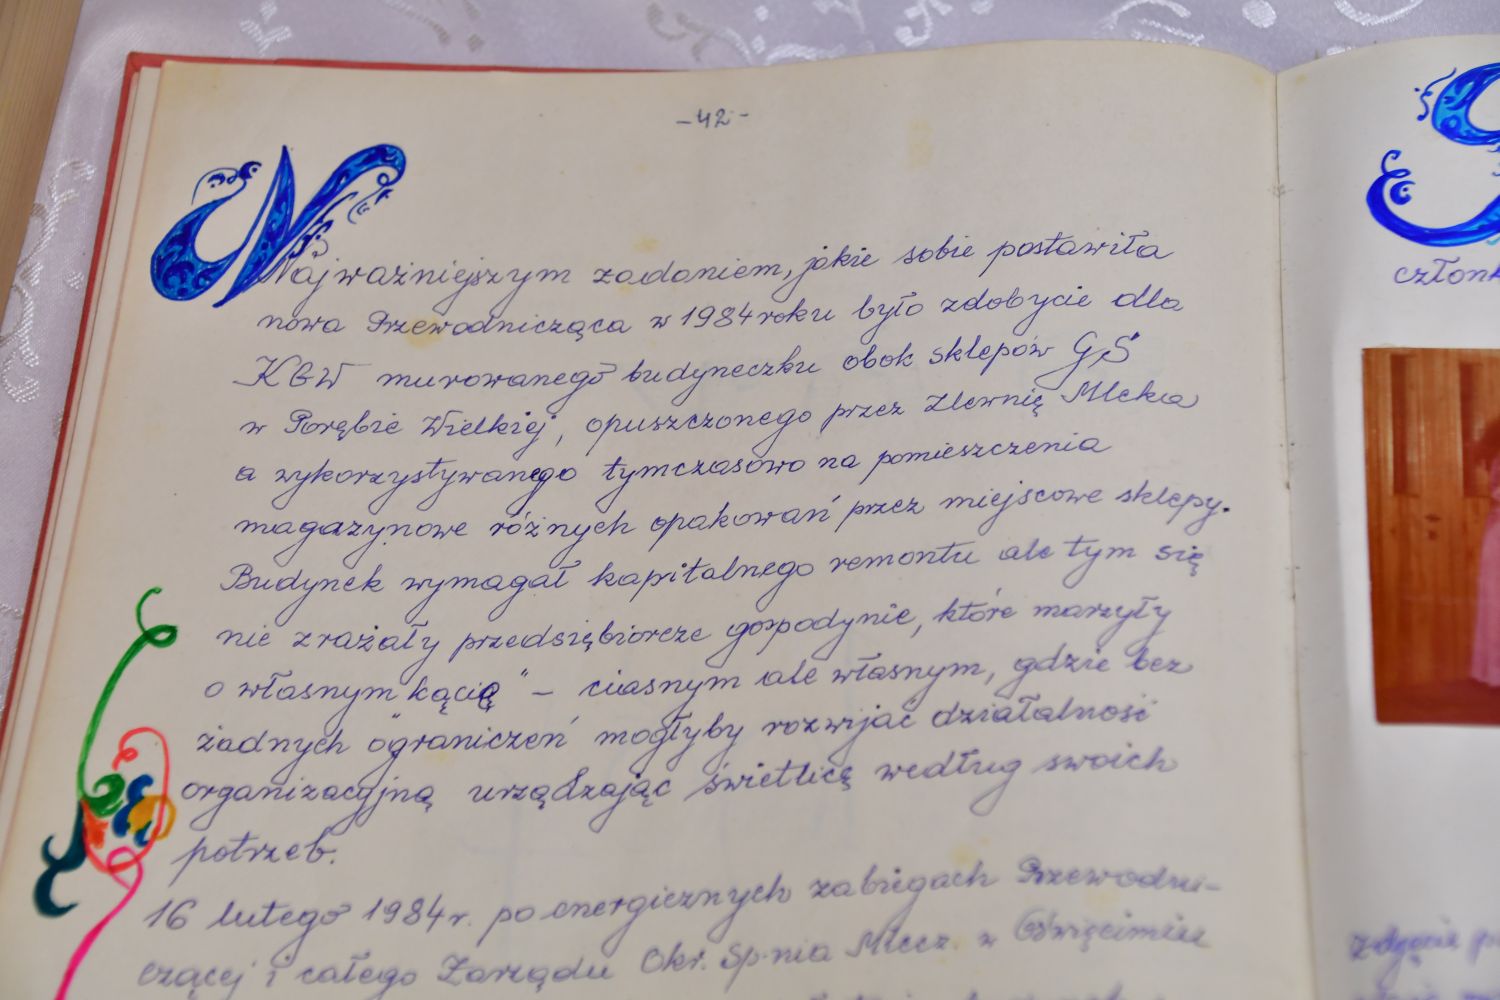 -42-
Najważniejszym zadaniem, jakie sobie postawiła
nowa Przewodnicząca w 1984 roku było zdobycie dla
KGW murowanego budyneczku obok sklepów GS
w Porębie Wielkiej, opuszczonego przez Zlewnię Mleka
a wykorzystywanego tymczasowo na pomieszczenia
magazynowe różnych opakowań przez miejscowe sklepy.
Budynek wymagał kapitalnego remontu ale tym się
nie zrażały przedsiębiorcze gospodynie, które marzyły
o własnym kącie" – ciasnym ale własnym, gdzie bez
żadnych "ograniczeń mogłyby rozwijać działalność
organizacyjną urządzając świetlicę według swoich
potrzeb.
16 lutego 1984 r. po energicznych zabiegach Przewodni-
czącej i całego Zarządu Okr. Sp-nia Mlecz. w Oświęcimiu
człon
Zdjęcie